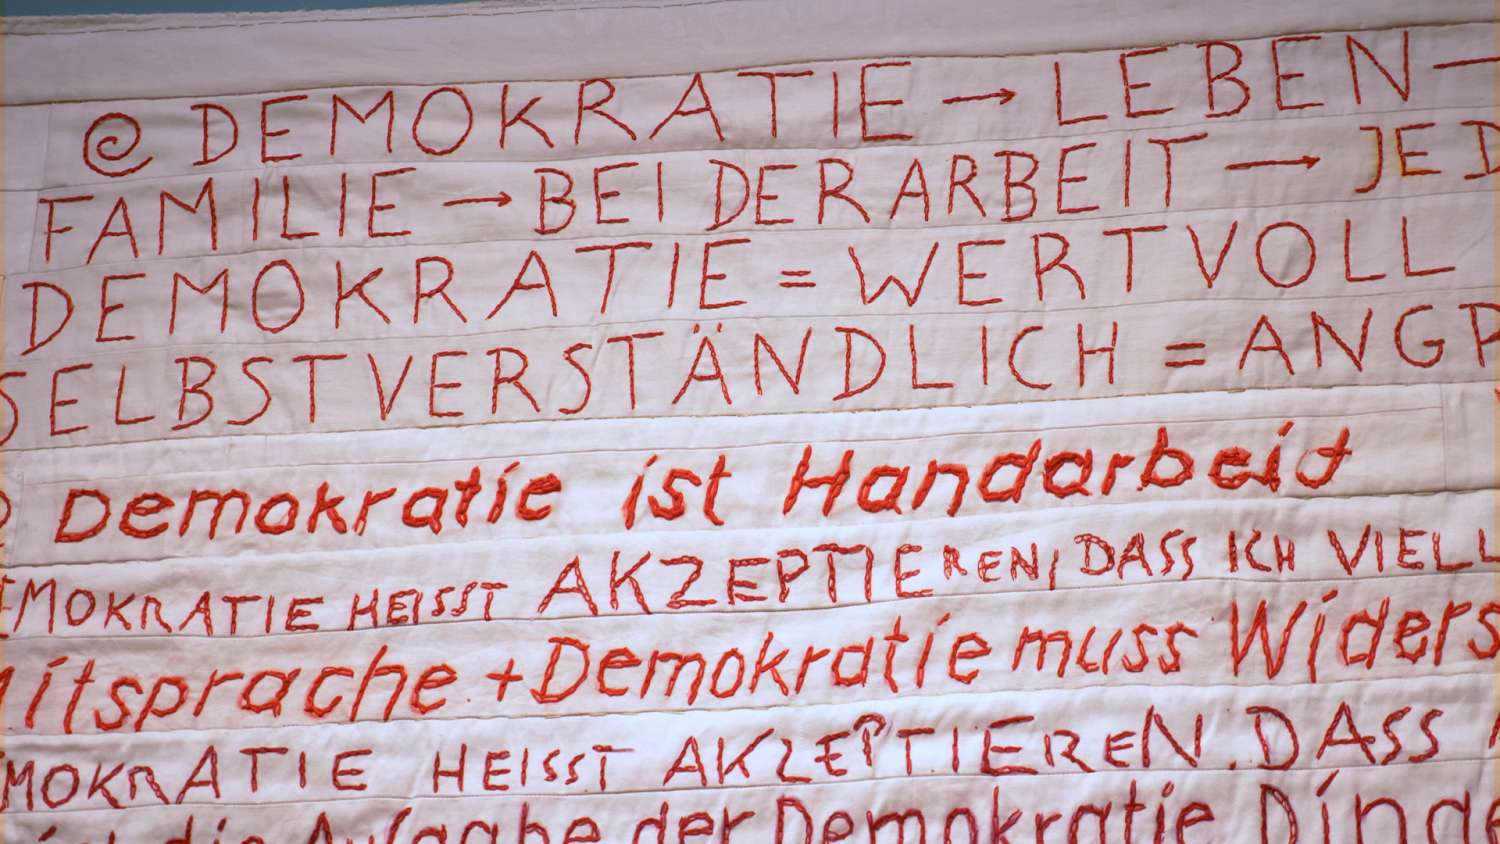 @ DEMOKRATIE → LEBEN —
FAMILIE → BEI DER ARBEIT → JED
DEMOKRATIE = WERTVOLL
SELBSTVERSTÄNDLICH = ANGR
Demokratie ist Handarbeit
EMOKRATIE HEISST AKZEPTIEREN, DASS ICH VIELL
itsprache + Demokratie muss Widers
MOKRATIE HEISST AKZEPTIEREN. DASS
ist die Aufgabe der Demokratie Dinge